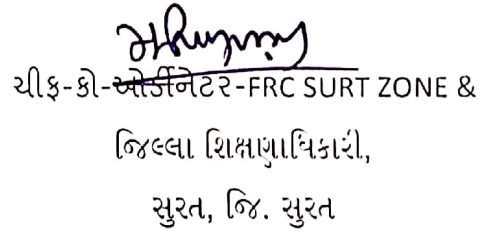 ચીફ-કો-ઓર્ડીનેટર-FRC SURT ZONE &
જિલ્લા શિક્ષણાધિકારી,
સુરત, જિ. સુરત